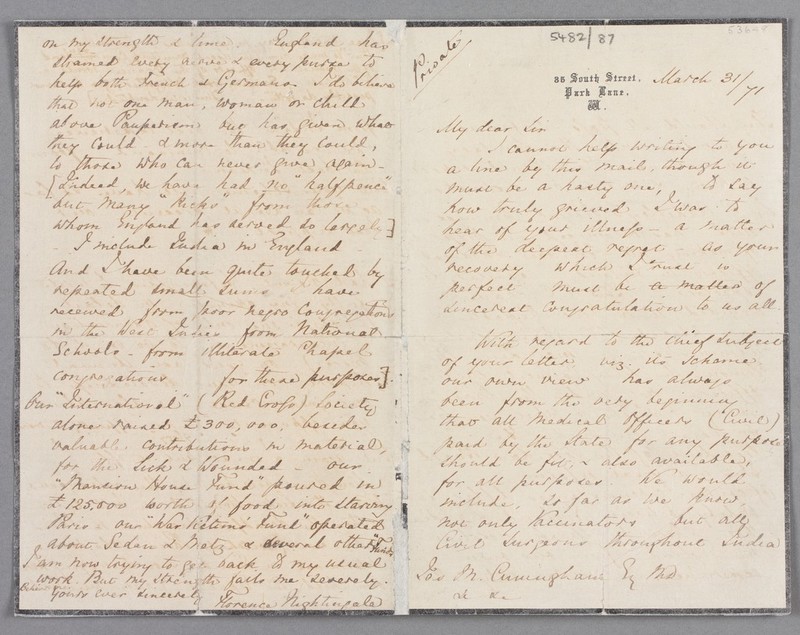 on my strength & time. England has
strained every nerve & every purse to
help both French & Germans. I do believe
that not one man, woman or child
above Pauperism but has given what
they could & more than they could,
to those who can never give again -
[Indeed, we have had no "halfpence"
but many "kicks" from those
whom England has served so largely]
- I include India in England -
And I have been quite touched by
repeated small sums I have
received from poor negro Congregations
in the West Indies, from National
Schools - from illiterate Chapel
congregations for these purposes].
Our "International" (Red Cross) Society
alone raised £300,000, besides
valuable contributions in material,
for the Sick & Wounded - our
"Mansion House Fund" poured in
£125.000 worth of food into starving
Paris - our "War Victims' Fund" operated
about Sedan & Metz & several other Funds
I am now trying to get back to my usual
work. But my strength fails me severely.
yours ever sincerely
Florence Nightingale
Private
5482/87
35 South Street,
Park Lane,
W.
March 31/71
My dear Sir
I cannot help writing to you
a line by this mail, though it
must be a hasty one, to say
how truly grieved I was to
hear of your illness - a matter
of the deepest regret - as your
recovery which I trust is
perfect must be a matter of
sincerest congratulation to us all
With regard to the chief subject
of your letter viz. its scheme
our own view has always
been from the very beginning
that all Medical Officers (Civil)
paid by the State for any purpose
should be fit, & also available,
for all purposes. We would
include, so far as we know,
not only Vaccinators but all
Civil Surgeons throughout India
Jas M. Cuningham Esq MD
&c &c